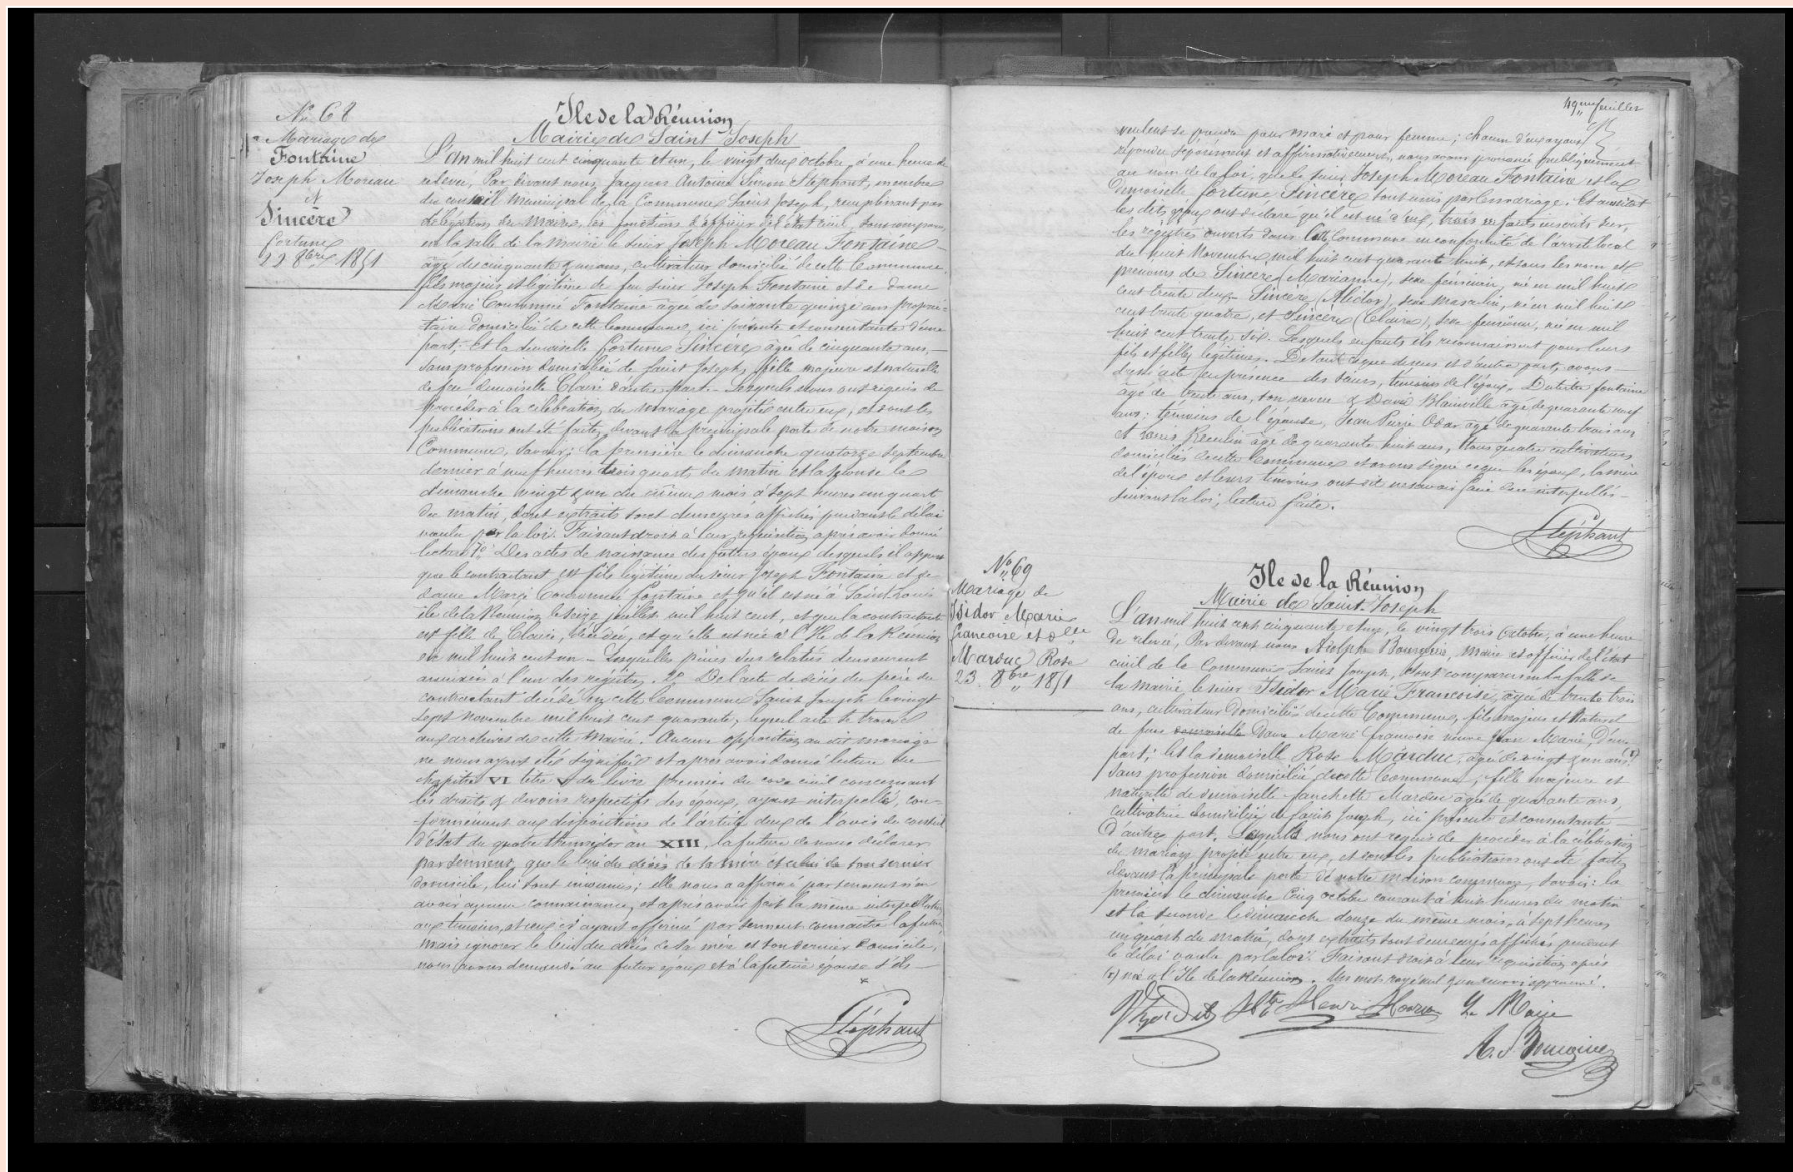 N° 68
Mariage de
Fontaine
Joseph Moreau
et
Sincère
Fortune
22 8bre 1851
Ile de la Réunion
Mairie de Saint Joseph
L'an mil huit cent cinquante et un, le vingt deux octobre, à une heure de
relevée, Par devant nous, Jacques Antoine Simon Stéphant, membre
du conseil Municipal de la Commune Saint Joseph, remplissant par
délégation du Maire, les fonctions d'officier de l'état civil, sont comparus
en la salle de la Mairie le sieur Joseph Moreau Fontaine
âgé de cinquante un ans, cultivateur domicilié de cette Commune,
fils majeur et légitime de feu sieur Joseph Fontaine et de dame
Marie Fontaine âgée de soixante quinze ans proprié-
taire domiciliée de cette Commune, ici présente et consentante d'une
part; Et la demoiselle Fortune Sincère âgée de cinquante ans,
sans profession domiciliée de Saint Joseph, fille majeure et naturelle
de feu demoiselle Claire d'autre part. Lesquels nous ont requis de
procéder à la célébration du mariage projeté entre eux, et dont les
publications ont été faites devant la principale porte de notre maison
Commune, Savoir: la première le dimanche quatorze septembre
dernier à neuf heures trois quarts du matin et la seconde le
dimanche vingt un du même mois à sept heures un quart
du matin, dont extraits sont demeurés affichés pendant le délai
voulu par la loi. Faisant droit à leur réquisition après avoir donné
lecture 1° Des actes de naissance des futurs époux desquels il appert
que le contractant est fils légitime du sieur Joseph Fontaine et de
dame Marie Fontaine et qu'il est né à Saint Louis
île de la Réunion le seize juillet mil huit cent, et que la contractante
est fille de Claire, et qu'elle est née à l'Ile de la Réunion
en mil huit cent un. Lesquelles pièces sus relatées demeurent
annexées à l'un des registres. 2° De l'acte de décès du père du
contractant décédé en cette Commune Saint Joseph le vingt
sept novembre mil huit cent quarante, lequel acte se trouve
aux archives de cette Mairie. Aucune opposition au dit mariage
ne nous ayant été signifiée et après avoir donné lecture du
chapitre VI titre V du livre premier du code civil concernant
les droits & devoirs respectifs des époux, ayant interpellé, con-
-formément aux dispositions de l'article deux de l'avis du conseil
d'état du quatre thermidor an XIII, la future de nous déclarer
par serment, que le lieu du décès de sa mère et celui de son dernier
domicile, lui sont inconnus; elle nous a affirmé par serment n'en
avoir aucune connaissance, et après avoir fait la même interpellation
aux témoins, et ceux-ci ayant affirmé par serment connaître la future
mais ignorer le lieu du décès de sa mère et son dernier domicile,
nous avons demandé au futur époux et à la future épouse s'ils
Stéphant
49me feuillet
veulent se prendre pour mari et pour femme; chacun d'eux ayant
répondu séparément et affirmativement, nous avons prononcé publiquement
au nom de la loi, que le sieur Joseph Moreau Fontaine et la
Demoiselle Fortune Sincère sont unis par le mariage. Et aussitôt
les dits époux ont déclaré qu'il est né d'eux, trois enfants inscrits sur
les registres ouverts dans cette Commune en conformité de l'arrêté local
du huit Novembre mil huit cent quarante huit, et sous les noms et
prénoms de Sincère (Marianne), sexe féminin, née en mil huit
cent trente deux - Sincère (Alidor), sexe masculin, né en mil huit
cent trente quatre, et Sincère (Claire), sexe féminin, née en mil
huit cent trente six. Lesquels enfants ils reconnaissent pour leurs
fils et filles légitimes. De tout ce que dessus et d'autre part, avons
dressé acte en présence des sieurs, témoins de l'époux, fontaine
âgé de trente ans, son neveu & David Blainville âgé de quarante neuf
ans; témoins de l'épouse, Jean Pierre âgé de quarante trois ans
et âgé de quarante huit ans, tous quatre cultivateurs
domiciliés de cette Commune et avons signé ce que les époux, la mère
de l'époux et leurs témoins ont dit ne savoir faire de ce interpellés
suivant la loi; lecture faite.
Stéphant
N° 69
Mariage de
Isidor Marie
Francoise et Dlle
Marduc Rose
23 8bre 1851
Ile de la Réunion
Mairie de Saint Joseph
L'an mil huit cent cinquante et un, le vingt trois Octobre, à une heure
de relevée, Par devant nous Adolphe Bourgine, maire et officier de l'état
civil de la Commune Saint Joseph, sont comparus en la salle de
la mairie, le sieur Isidor Marie Francoise, âgé de trente trois
ans, cultivateur domicilié de cette Commune, fils majeur et Naturel
de feue demoiselle Dame Marie Francoise veuve Marie, D'une
part; Et la demoiselle Rose Marduc, âgée de vingt un ans (1)
sans profession domiciliée de cette Commune, fille majeure et
naturelle de demoiselle Fanchette Marduc âgée de quarante ans,
cultivatrice domiciliée de Saint Joseph, ici présente et consentante
D'autre part, Lesquels nous ont requis de procéder à la célébration
du mariage projeté entre eux, et dont les publications ont été faites
devant la principale porte de notre maison commune, savoir: la
première le dimanche Cinq octobre courant à huit heures du matin
et la seconde le dimanche douze du même mois, à sept heures
un quart du matin, dont extraits sont demeurés affichés pendant
le délai voulu par la loi. Faisant droit à leur réquisition après
(1) née à l'Ile de la Réunion. Un mot rayé nul & un renvoi approuvé.
Le Maire
A. Bourgine